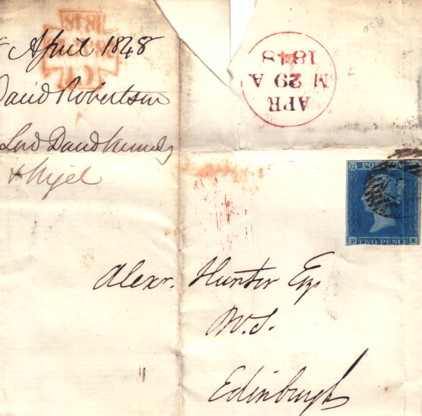 April 1848
David Robertson
Lord David Kennedy
1848
APR
M 29 A
1848
POSTAGE
TWO PENCE
Alexr. Hunter Esq
W.S.
Edinburgh